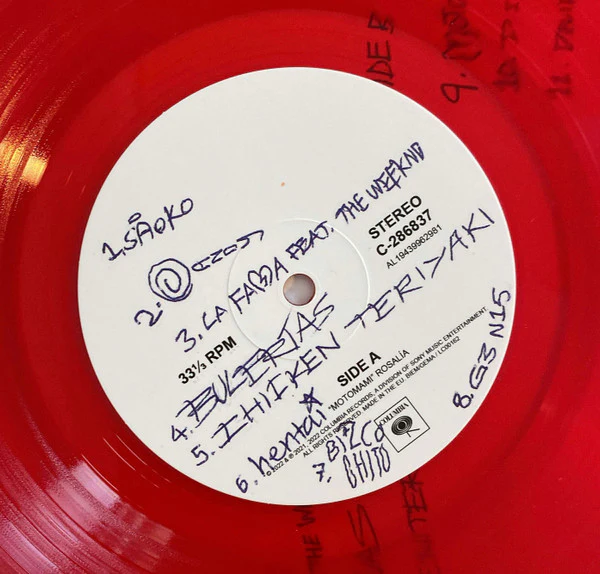 1. SÅOKO
2. CANDY
3. LA FAMA FEAT. THE WEEKND
4. BULERÍAS
5. CHICKEN TERIYAKI
6. hentai
7. BIZCO
CHITO
8. G3 N15
STEREO
C-286837
AL19439962981
33⅓ RPM
SIDE A
"MOTOMAMI" ROSALÍA
2021, 2022 COLUMBIA RECORDS, A DIVISION OF SONY MUSIC ENTERTAINMENT.
ALL RIGHTS RESERVED. MADE IN THE EU. BIEM/GEMA / LC00162
COLUMBIA
IDE B
9. MOTO
10
11.
THE W